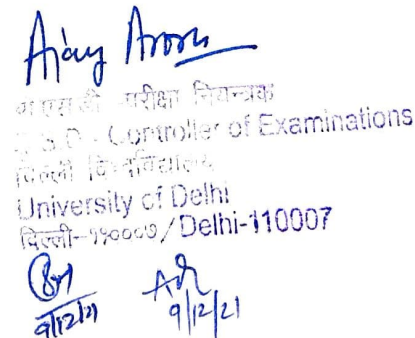 Ajay Arora
परीक्षा नियन्त्रक
O.S.D. - Controller of Examinations
दिल्ली विश्वविद्यालय
University of Delhi
दिल्ली-११०००७/Delhi-110007
9/12/21 9/12/21